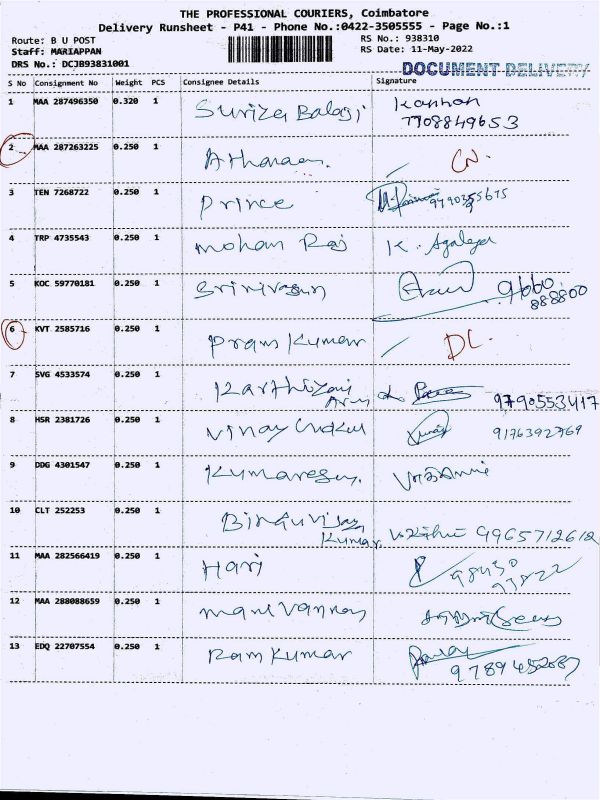 THE PROFESSIONAL COURIERS, Coimbatore
Delivery Runsheet - P41 - Phone No.:0422-3505555 - Page No.:1
Route: B U POST RS No.: 938310
Staff: MARIAPPAN RS Date: 11-May-2022
DRS No.: DCJB93831001
DOCUMENT DELIVERY
S No Consignment No Weight PCS Consignee Details Signature
1 MAA 287496350 0.320 1 Balaji Kannan
7708849653
2 MAA 287263225 0.250 1
3 TEN 7268722 0.250 1 Prince
4 TRP 4735543 0.250 1 Mohan Raj K.
5 KOC 59770181 0.250 1 Srinivasan
6 KVT 2585716 0.250 1 Prem Kumar DL.
7 SVG 4533574 0.250 1 9790553417
8 HSR 2381726 0.250 1 Vinay
9 DDG 4301547 0.250 1 Kumaresan.
10 CLT 252253 0.250 1 9965712612
Kumar
11 MAA 282566419 0.250 1 Hari
12 MAA 288088659 0.250 1 Manivannan
13 EDQ 22707554 0.250 1 Ram Kumar